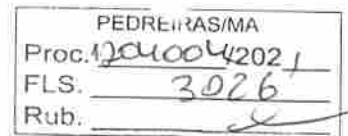 PEDREIRAS/MA
Proc.1204004/2021
FLS. 3026
Rub.